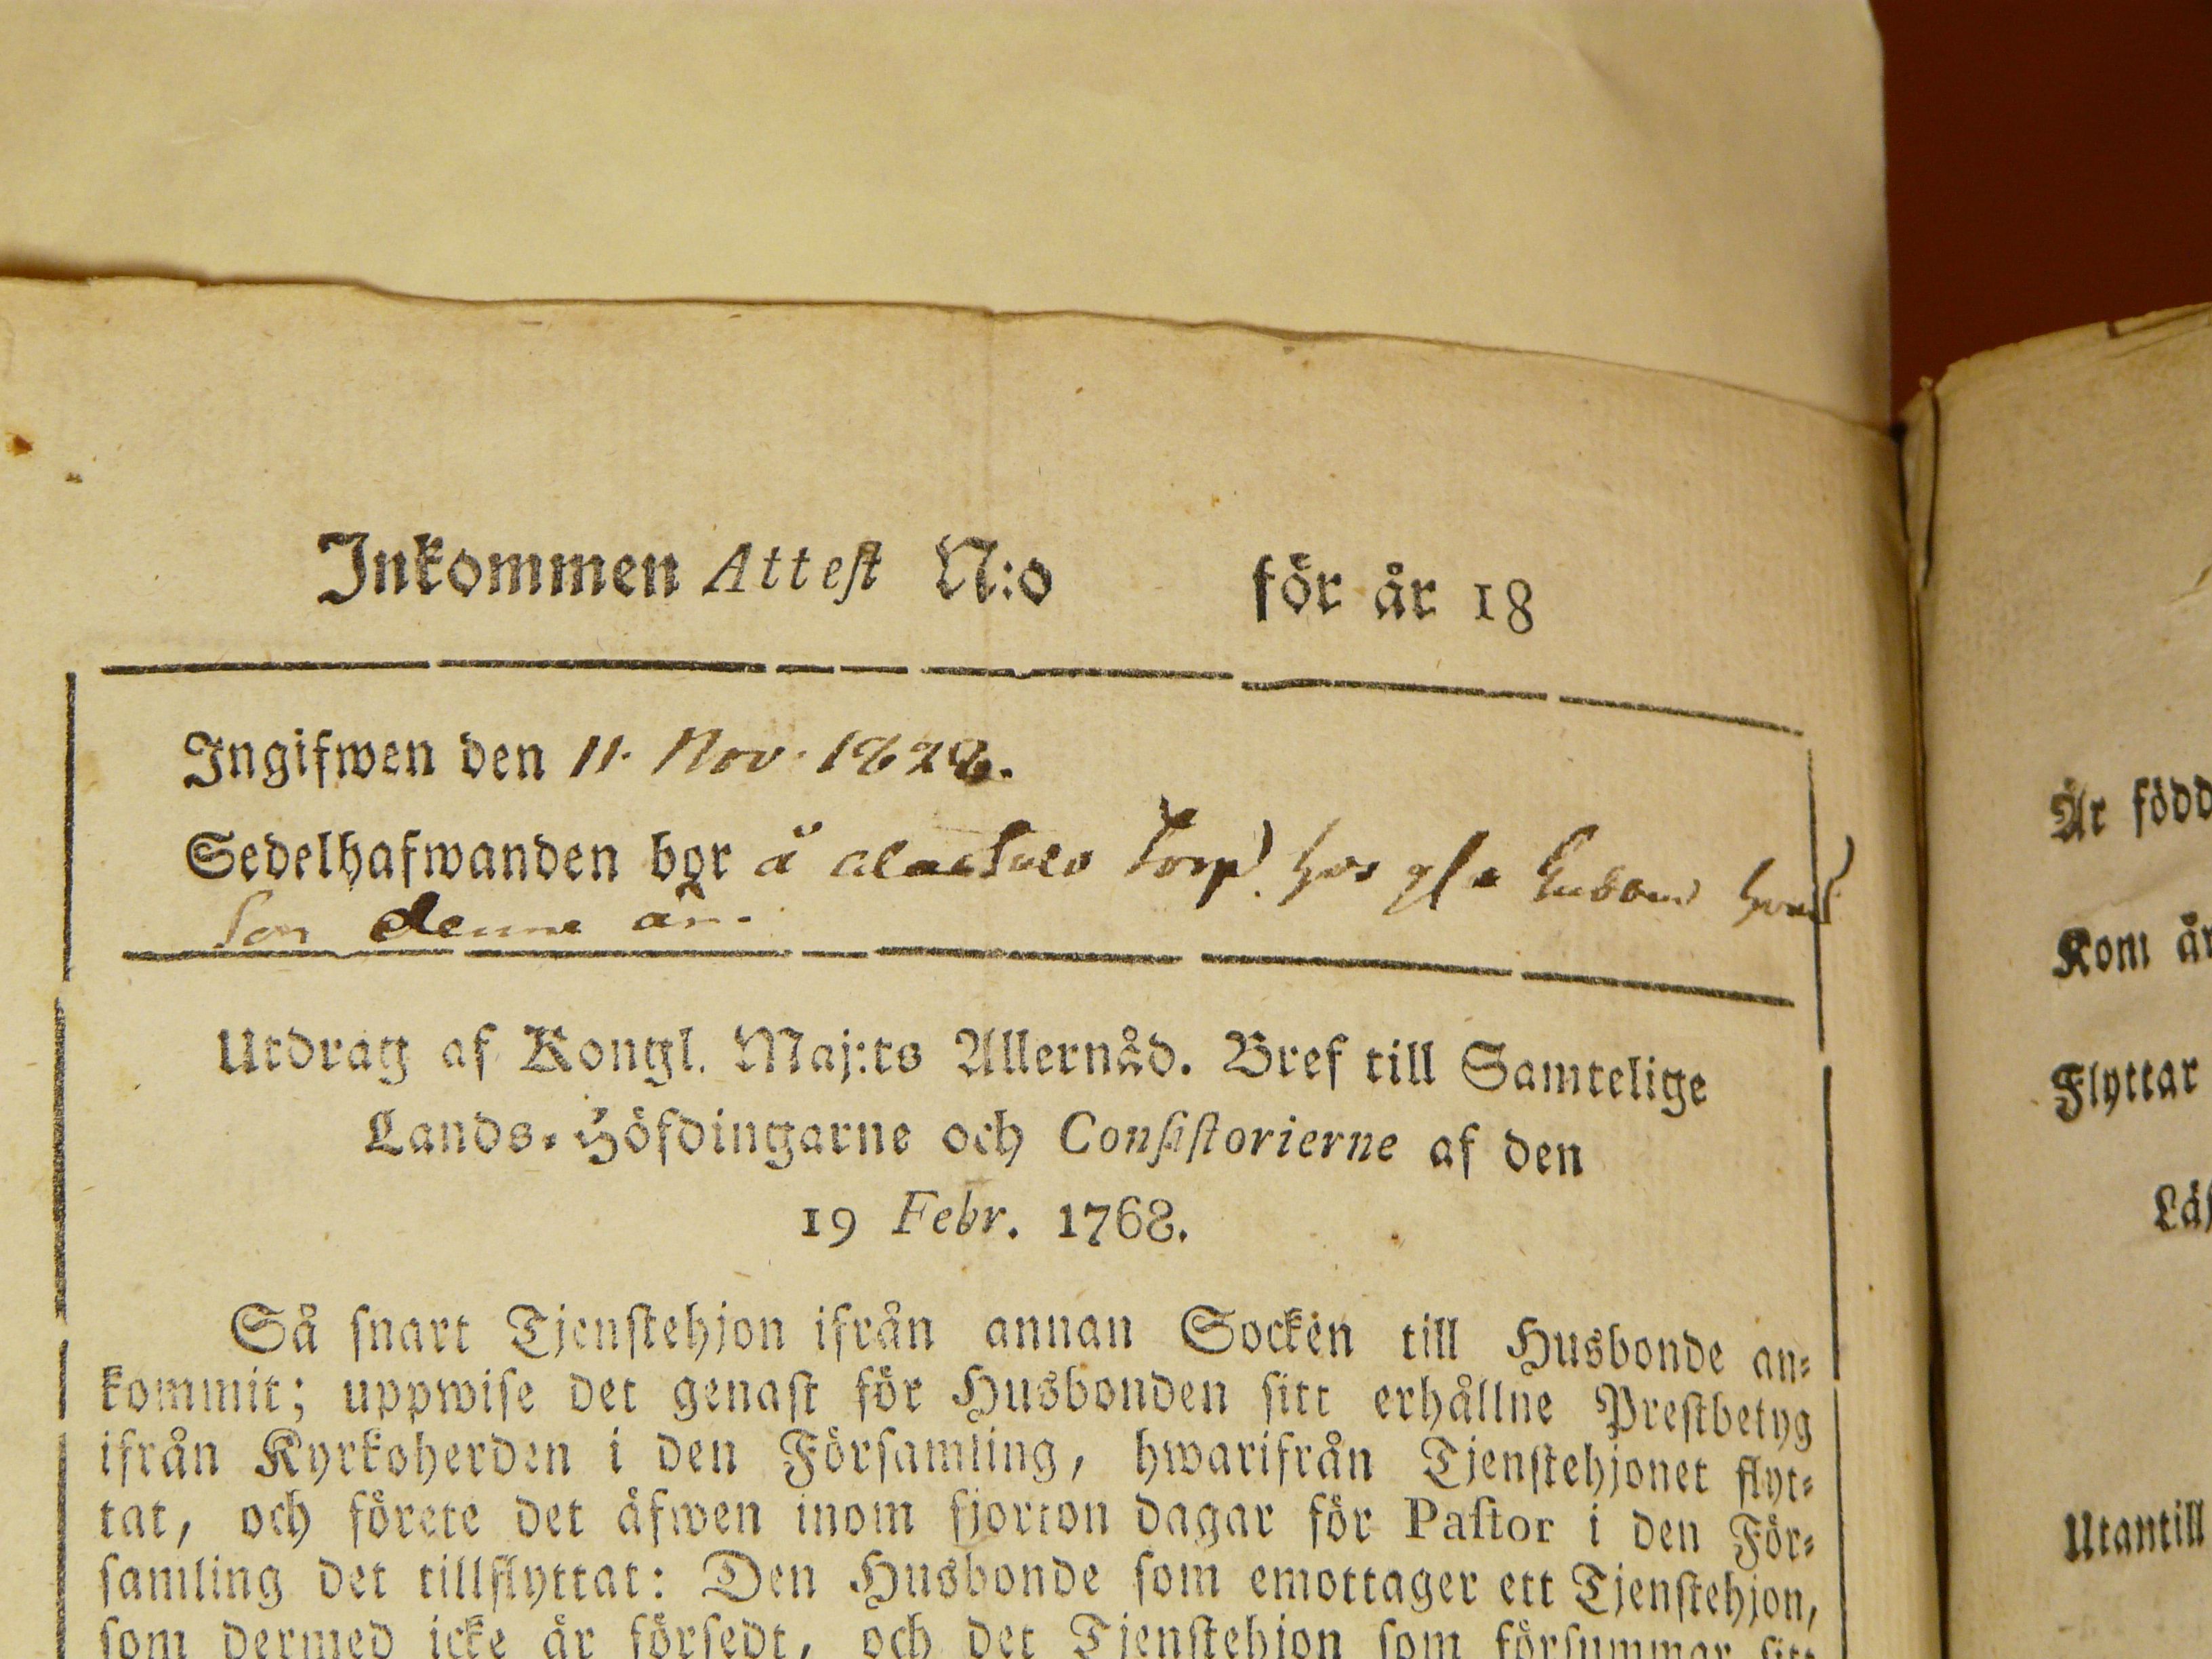 Inkommen Attest N:o för år 18
Ingifwen den 11. Nov. 1828.
Sedelhafwanden bor å Torp. hos gla
Son denne är.
Utdrag af Kongl. Maj:ts Allernåd. Bref till Samtelige
Lands-Höfdingarne och Consistorierne af den
19 Febr. 1768.
Så snart Tjenstehjon ifrån annan Socken till Husbonde an-
kommit; uppwise det genast för Husbonden sitt erhållne Prestbetyg
ifrån Kyrkoherden i den Församling, hwarifrån Tjenstehjonet flyt-
tat, och förete det äfwen inom fjorton dagar för Pastor i den För-
samling det tillflyttat: Den Husbonde som emottager ett Tjenstehjon,
som dermed icke är försedt, och det Tjenstehjon som försummar sitt
Är född
Kom år
Flyttar
Utantill